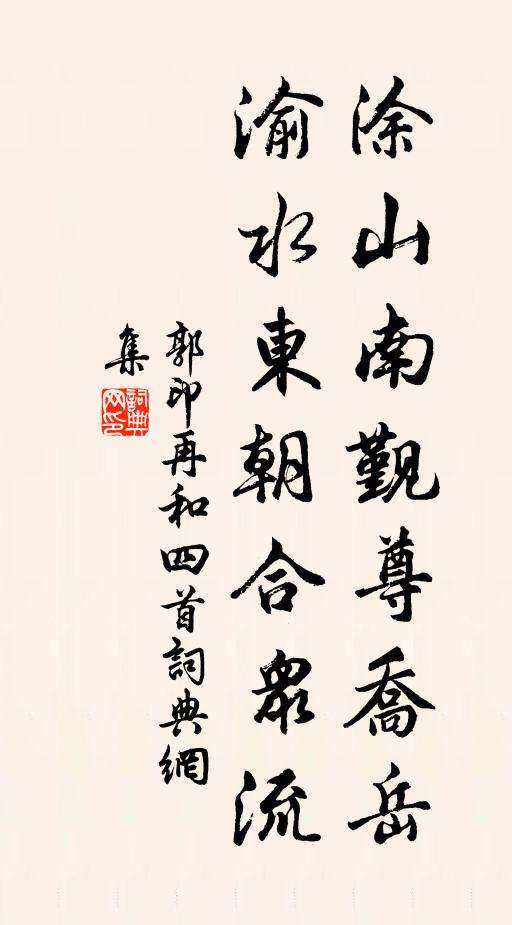 涂山南觐尊喬岳
渝水東朝合衆流
郭印再和四首詞典網
集
詞典網印